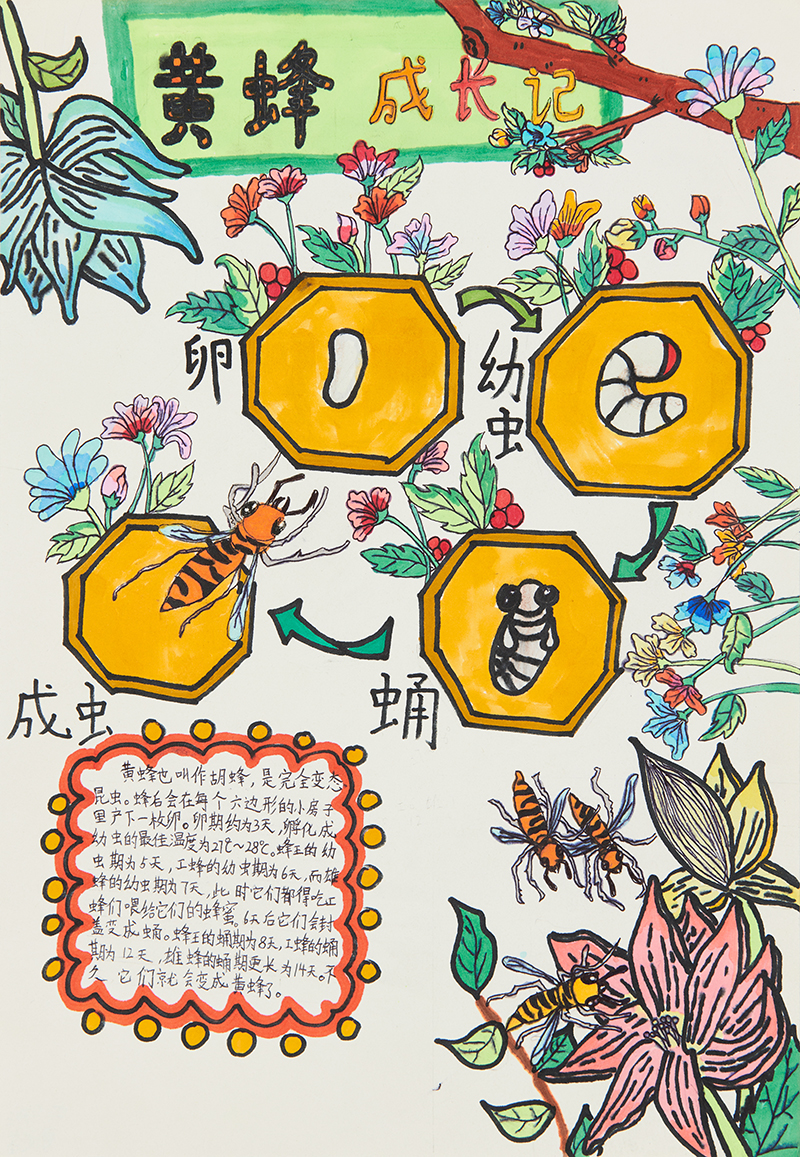 黄蜂 成长记
卵
幼虫
蛹
成虫
黄蜂也叫作胡蜂，是完全变态
昆虫。蜂后会在每个六边形的小房子
里产下一枚卵。卵期约为3天，孵化成
幼虫的最佳温度为27℃～28℃。蜂王的幼
虫期为5天，工蜂的幼虫期为6天，而雄
蜂的幼虫期为7天，此时它们都得吃工
蜂们喂给它们的蜂蜜。6天后它们会封
盖变成蛹。蜂王的蛹期为8天，工蜂的蛹
期为12天，雄蜂的蛹期更长为14天。不
久它们就会变成黄蜂了。